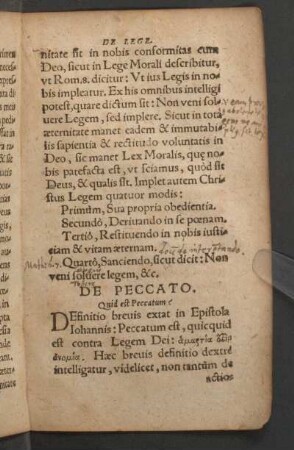 DE LEGE.
nitate sit in nobis conformitas cum
Deo, sicut in Lege Morali describitur,
vt Rom.8. dicitur: Vt ius Legis in no-
bis impleatur. Ex his omnibus intelligi
potest, quare dictum sit: Non veni sol-
uere Legem, sed implere. Sicut in tota
æternitate manet eadem & immutabi-
lis sapientia & rectitudo voluntatis in
Deo, sic manet Lex Moralis, quę no-
bis patefacta est, vt sciamus, quòd sit
Deus, & qualis sit. Implet autem Chri-
stus Legem quatuor modis:
Primùm, Sua propria obedientia.
Secundò, Deriuando in se pœnam.
Tertiò, Restituendo in nobis iusti-
ciam & vitam æternam.
Quartò, Sanciendo, sicut dicit: Non
veni soluere legem, &c.
DE PECCATO.
Quid est Peccatum?
Definitio breuis extat in Epistola
Iohannis: Peccatum est, quicquid
est contra Legem Dei: ἁμαρτία ἐστὶν
ἀνομία. Hæc breuis definitio dextrè
intelligatur, videlicet, non tantùm de
actios